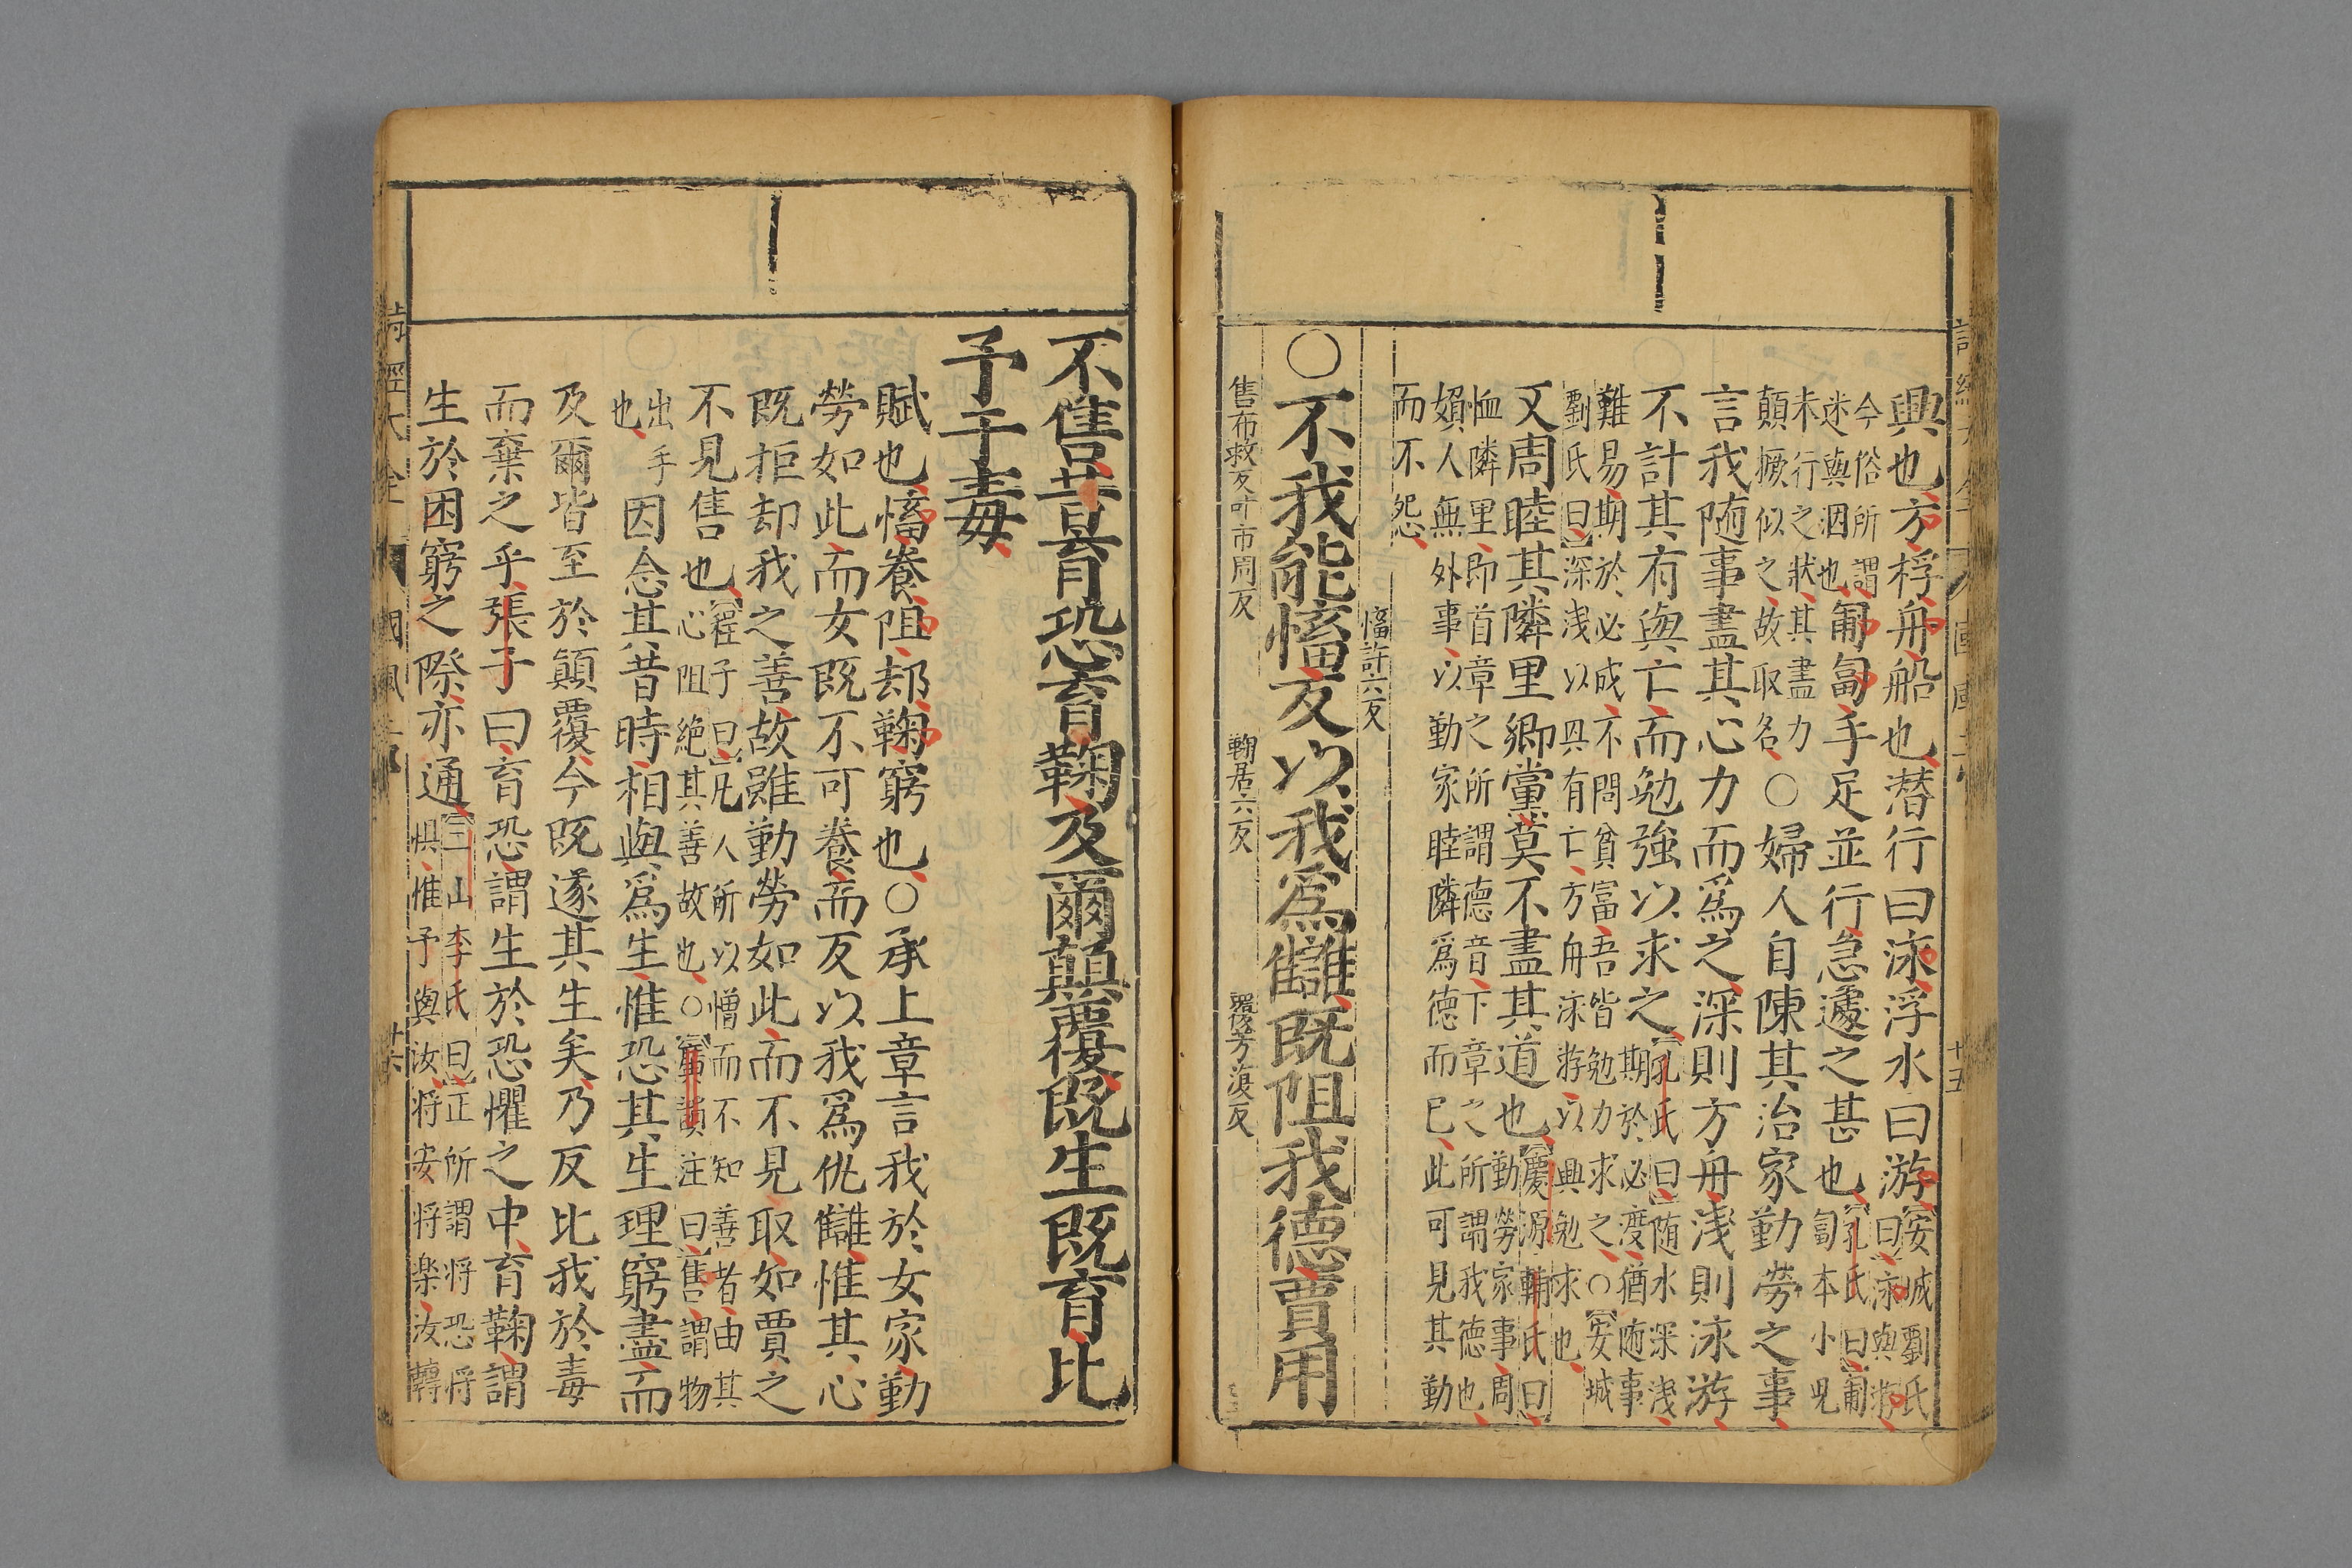 興也方桴舟船也潜行曰泳浮水曰游安城劉氏曰泳與游
今俗所謂迷與泅也匍匐手足並行急遽之甚也孔氏曰匍匐本小兒
未行之狀其盡力顛蹶似之故取名○婦人自陳其治家勤勞之事
言我随事盡其心力而爲之深則方舟浅則泳游
不計其有與亡而勉強以求之孔氏曰随水深浅期於必渡猶随事
難易期於必成不問貧富吾皆勉力求之○安城
劉氏曰深浅以興有亡方舟泳游以興勉求也
又周睦其隣里鄉黨莫不盡其道也慶源輔氏曰勤勞家事周
恤隣里即首章之所謂德音下章之所謂我德也
婦人無外事以勤家睦隣爲德而已此可見其勤
而不怨
慉許六反
○不我能慉反以我爲讎既阻我德賈用
售布救反叶市周反 鞠居六反 覆芳復反
不售昔育恐育鞠及爾顛覆既生既育比
予于毒
賦也慉養阻却鞠窮也○承上章言我於女家勤
勞如此而女既不可養而反以我爲仇讎惟其心
既拒却我之善故雖勤勞如此而不見取如賈之
不見售也程子曰凡人所以憎而不知善者由其心阻絶其善故也○廣韻注曰售謂物
出手也因念其昔時相與爲生惟恐其生理窮盡而
及爾皆至於顛覆今既遂其生矣乃反比我於毒
而棄之乎張子曰育恐謂生於恐懼之中育鞠謂
生於困窮之際亦通三山李氏曰正所謂将恐将懼惟予與汝将安将楽汝轉
詩經大全 國風二 廿六